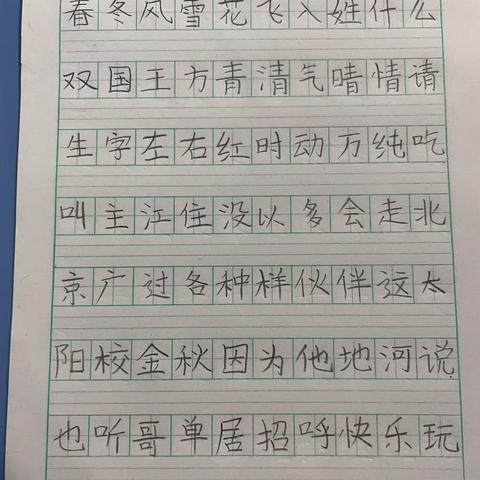 春冬风雪花飞入姓什么
双国王方青清气晴情请
生字左右红时动万纯吃
叫主江住没以多会走北
京广过各种样伙伴这太
阳校金秋因为他地河说
也听哥单居招呼快乐玩